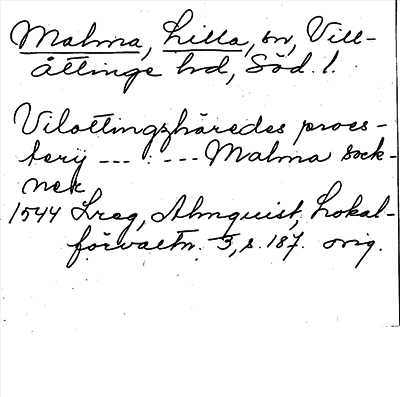 Malma, Lilla, sn, Vill-
åttinge hd, Söd. l.
Vilottingzhäredes proes-
terij --- : --- Malma sock-
nek
1544 Lreg, Almquist, Lokal-
förvaltn. 3, s. 187. orig.